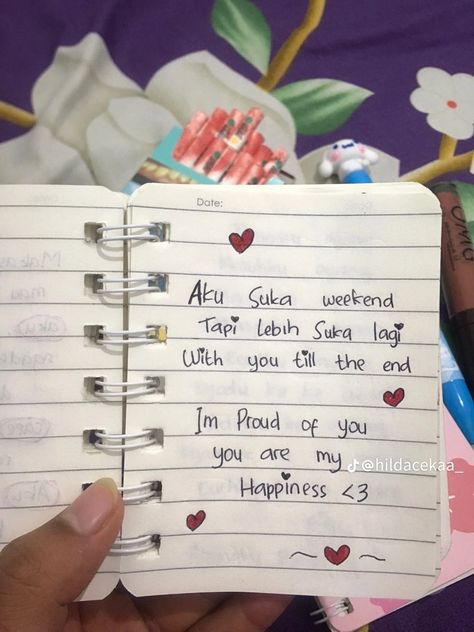 Date:
Aku Suka weekend
Tapi Lebih Suka lagi
With you till the end
Im Proud of you
you are my
Happiness <3
@hildacekaa_